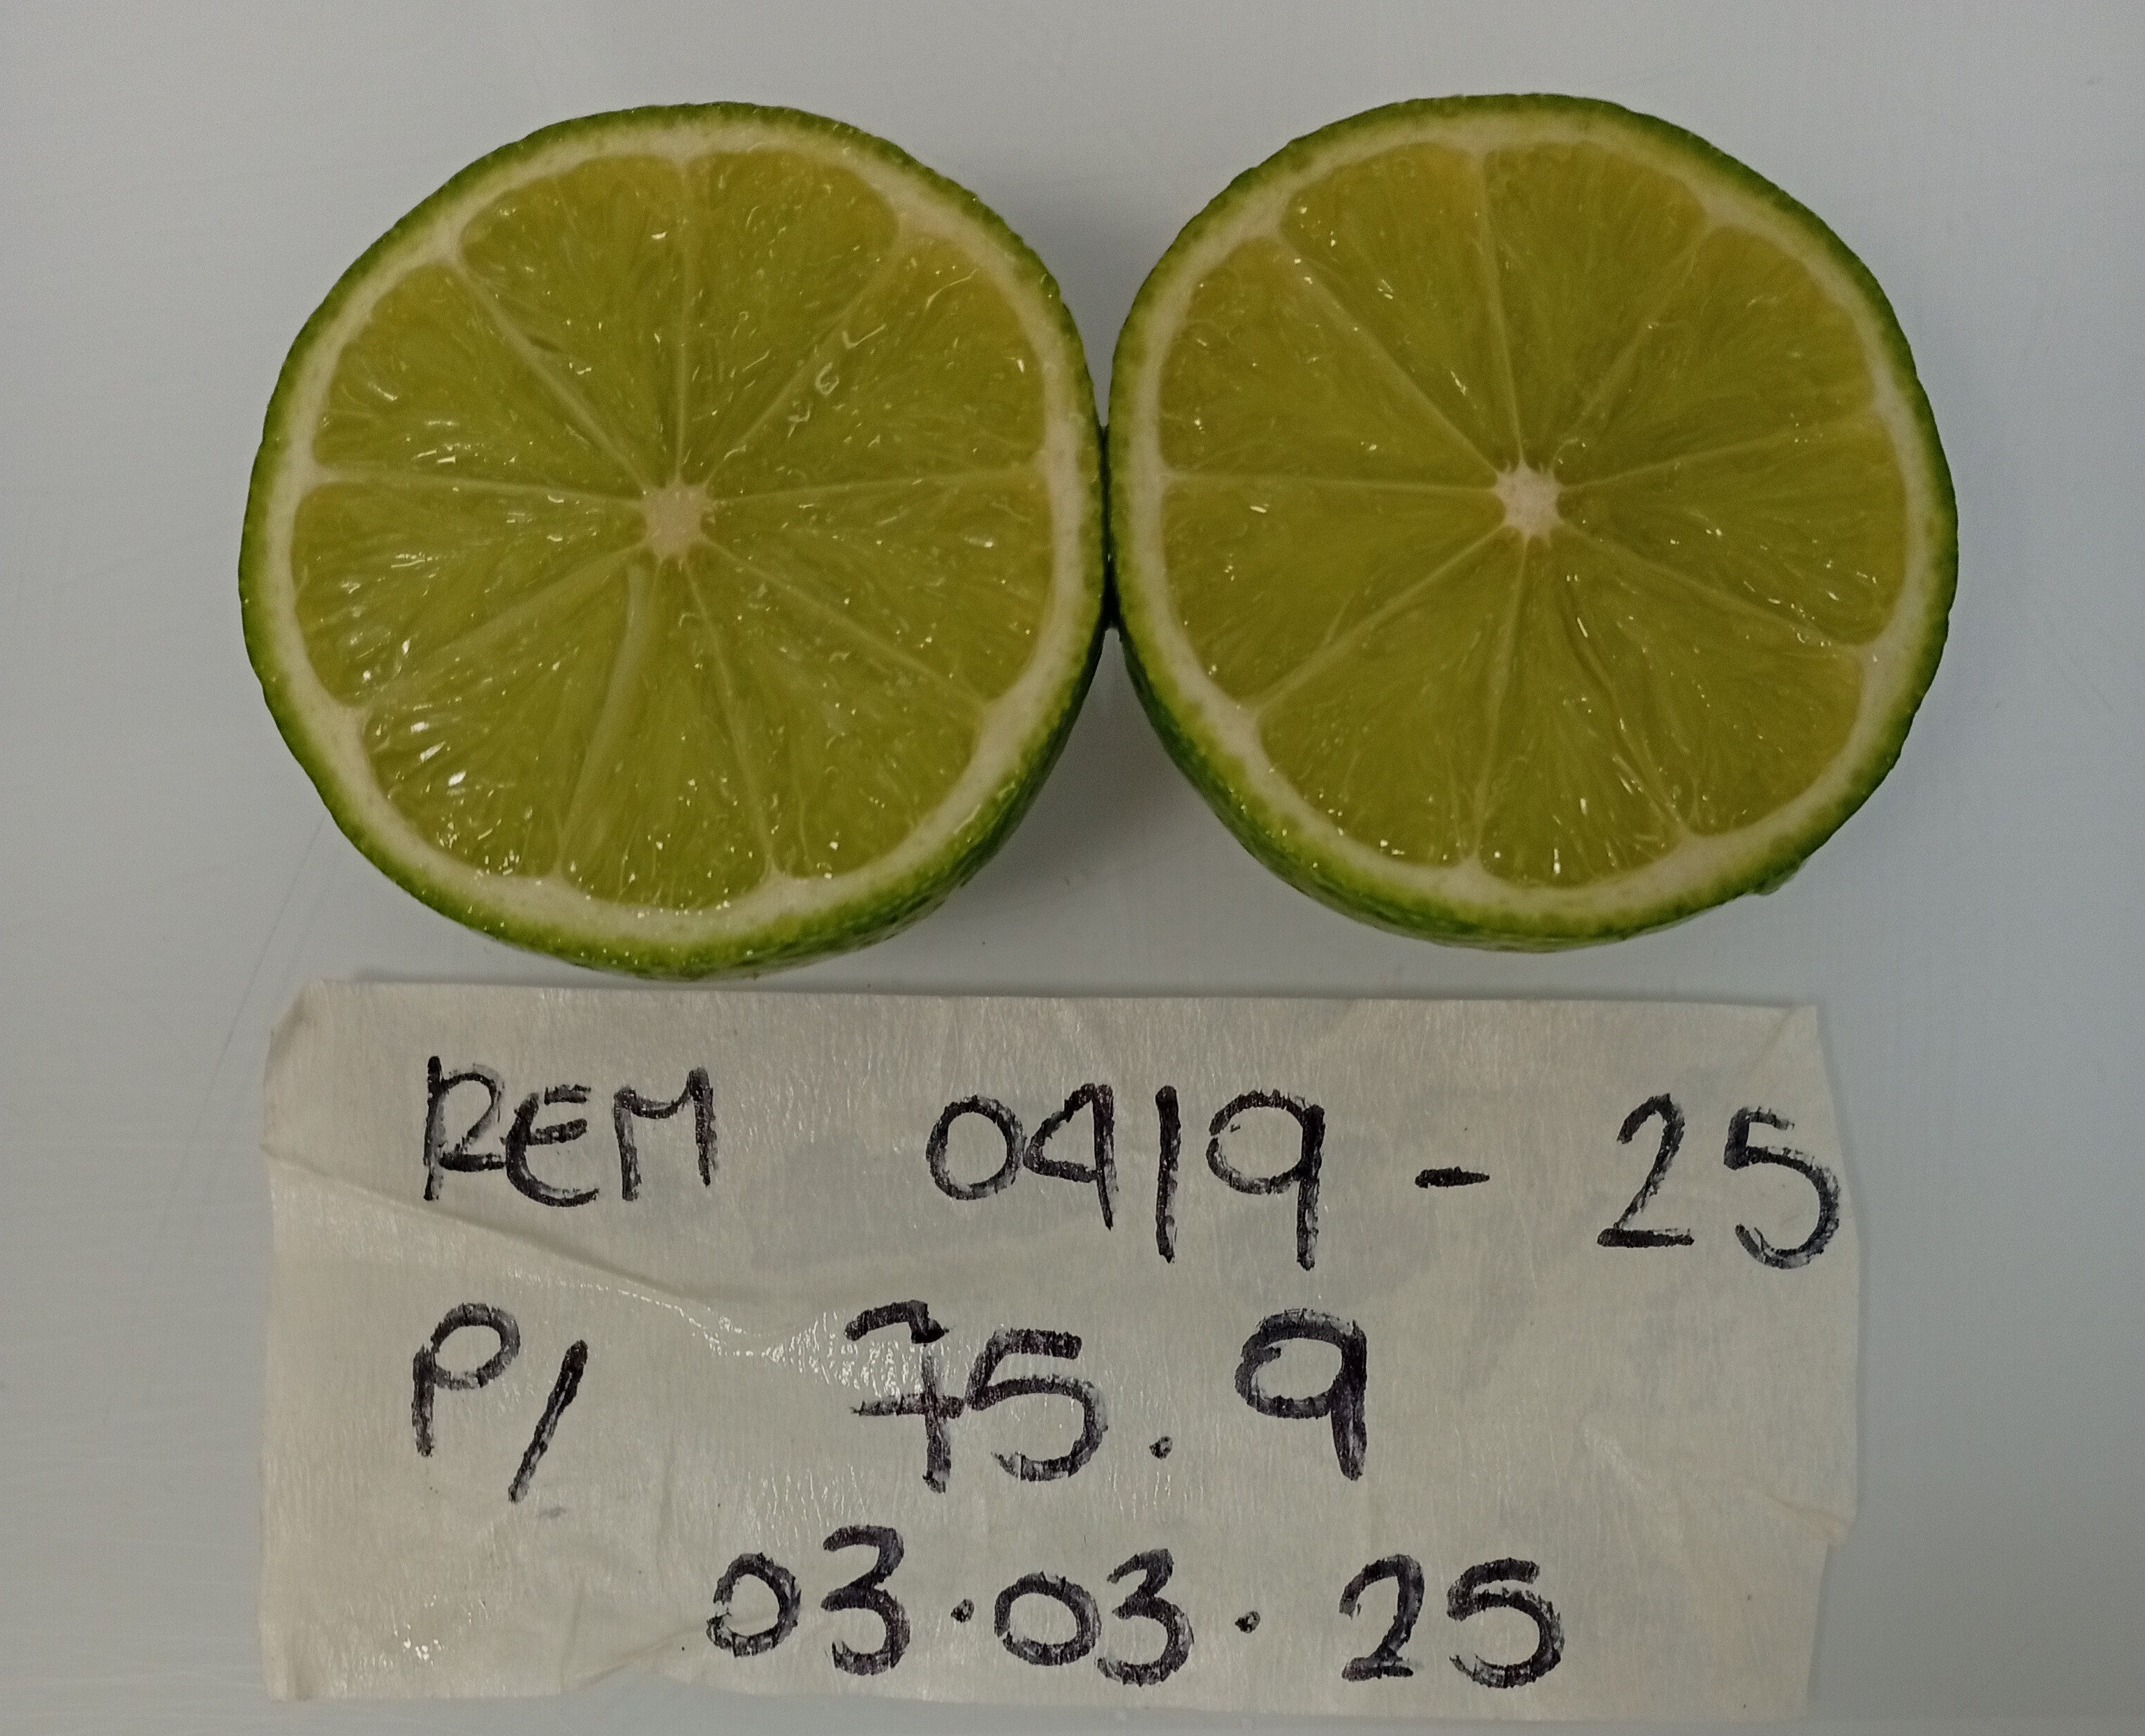 REM 0419 - 25
P/ 75.9
03.03.25